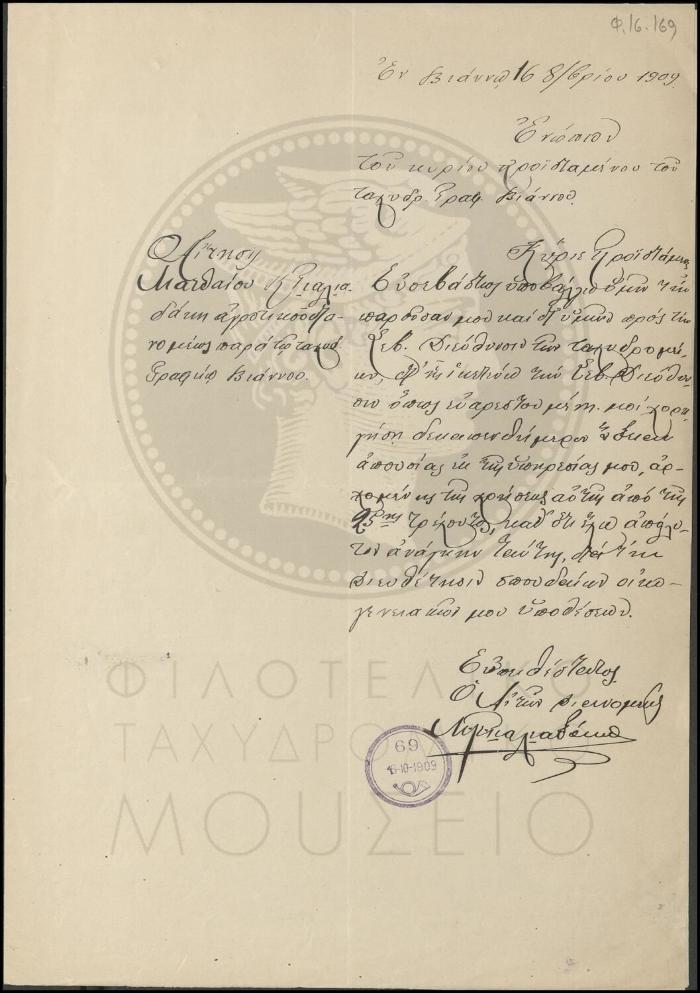 Φ.16.169
Ἐν Βιάννῳ 16 8/βρίου 1909.
Ἐνώπιον
Τοῦ κυρίου προϊσταμένου τοῦ
ταχυδρ. Γραφ. Βιάννου.
Αἴτησις
Ματθαίου
δάκη ἀγροτικοῦ δια-
νομέως παρὰ τῷ ταχυδ.
Γραφείῳ Βιάννου.
Κύριε Προϊστάμενε
Εὐσεβάστως ὑποβάλλω ὑμῖν τὴν
παροῦσαν μου καὶ δι' ὑμῶν πρὸς τὴν
Σεβ. Διεύθυνσιν τῶν ταχυδρομεί-
ων, δι' ἧς ἱκετεύω τὴν Σεβ. Διεύθυν-
σιν ὅπως εὐαρεστουμένη μοὶ χορη-
γήσῃ δεκαπενθήμερον ἄδειαν
ἀπουσίας ἐκ τῆς ὑπηρεσίας μου, ἀρ-
χομένης τῆς χρήσεως αὐτῆς ἀπὸ τῆς
τρέχοντος, καθ' ὅτι ἔχω ἀπόλυ-
τον ἀνάγκην ταύτης, διὰ τὴν
διευθέτησιν σπουδαίων οἰκο-
γενειακῶν μου ὑποθέσεων.
Εὐπειθέστατος
Ὁ Αἰτῶν διανομεύς
69
16-10-1909
ΦΙΛΟΤΕΛΙΚΟ
ΤΑΧΥΔΡΟΜΙΚΟ
ΜΟΥΣΕΙΟ